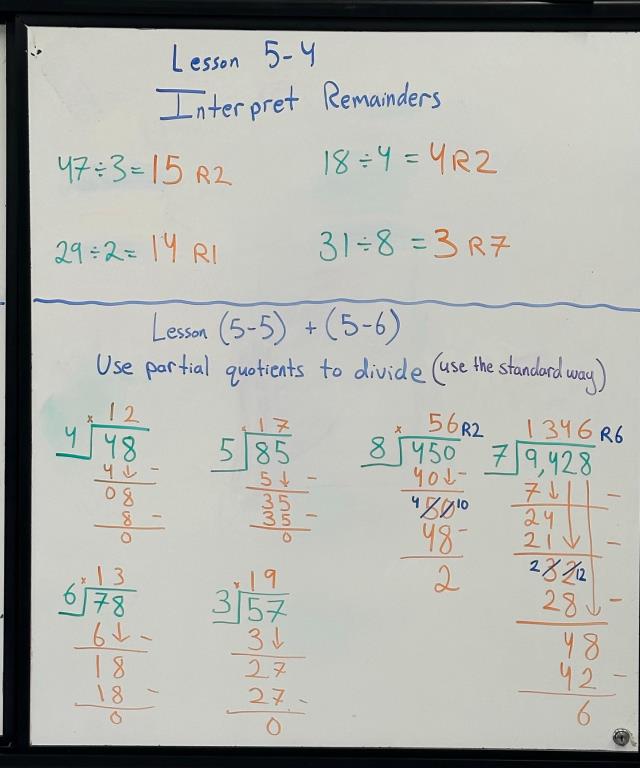 Lesson 5-4
Interpret Remainders
47÷3=15 R2
18÷4=4R2
29÷2=14 R1
31÷8=3 R7
Lesson (5-5) + (5-6)
Use partial quotients to divide (use the standard way)
x 12
4 48
4↓ -
08
8 -
0
x 17
5 85
5↓ -
35
35 -
0
x 56 R2
8 450
40↓ -
4 50 10
48 -
2
1346 R6
7 9,428
7↓ -
24
21↓ -
2 32 12
28↓ -
48
42 -
6
x 13
6 78
6↓ -
18
18 -
0
x 19
3 57
3↓
27
27 -
0